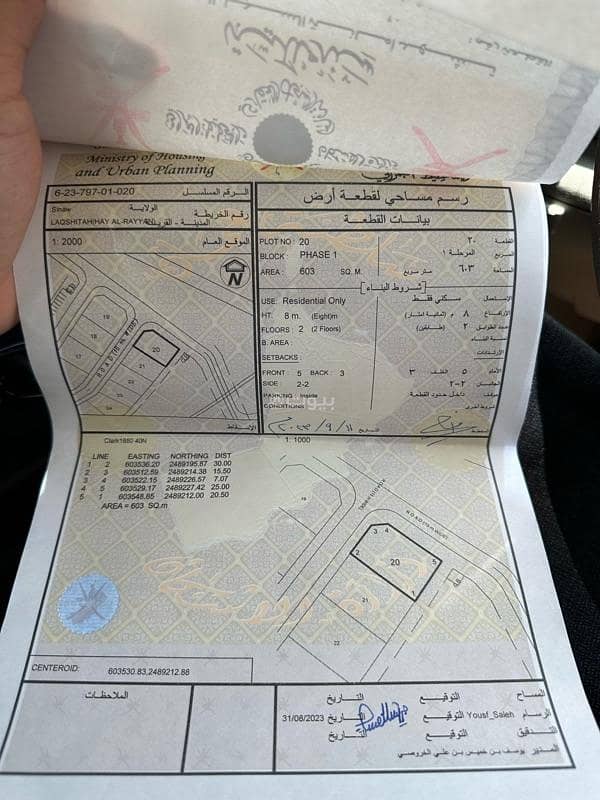 Ministry of Housing
and Urban Planning
6-23-797-01-020 الرقم المسلسل
Sinaw الولاية
المدينة - القرية
LAQSHITAH/HAY AL-RAYYAN رقم الخريطة
1: 2000 الموقع العام
N
19
18
20
21
22
54
الاسقاط
Clark1880 40N
رسم مساحي لقطعة أرض
بيانات القطعة
PLOT NO : 20 ٢٠ القطعة
BLOCK : PHASE 1 المرحلة ١ المربع
AREA : 603 SQ. M. متر مربع ٦٠٣ المساحة
شروط البناء
USE: Residential Only سكني فقط الاستعمال
HT: 8 m. (Eight)m ٨ م (ثمانية امتار) الارتفاع
FLOORS : 2 (2 Floors) ٢ (طابقين) عدد الطوابق
B. AREA : نسبة البناء
SETBACKS : الارتدادات
FRONT : 5 BACK : 3 ٣ الخلف ٥ الأمام
SIDE : 2-2 ٢-٢ الجانبين
PARKING : Inside داخل حدود القطعة موقف
CONDITIONS شروط اخرى
بيوت
1: 1000
LINE EASTING NORTHING DIST
1 2 603536.20 2489195.87 30.00
2 3 603512.59 2489214.38 15.50
3 4 603522.15 2489226.57 7.07
4 5 603529.17 2489227.42 25.00
5 1 603548.85 2489212.00 20.50
AREA = 603 SQ.m
19
3 4
2
20
5
1
4.8
21
22
CENTEROID: 603530.83,2489212.88
الملاحظات
المساح التوقيع التاريخ
الرسام Yousf_Saleh التوقيع التاريخ 31/08/2023
التدقيق التوقيع التاريخ
المدير يوسف بن خميس بن علي الخروصي